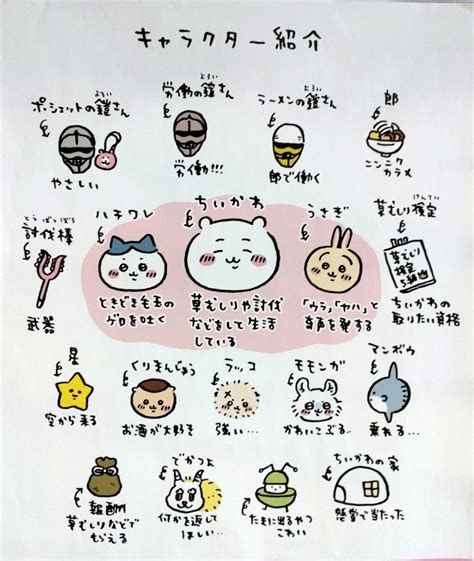 キャラクター紹介
よろい
ポシェットの鎧さん
やさしい
ろうどう よろい
労働の鎧さん
労働!!!
よろい
ラーメンの鎧さん
郎で働く
郎
ニンニク
カラメ
とうばつぼう
討伐棒
武器
ハチワレ
ときどき毛玉の
ゲロを吐く
ちいかわ
草むしりや討伐
などをして生活
している
うさぎ
「ウラ」「ヤハ」と
奇声を発する
けんてい
草むしり検定
草むしり
検定
5級
ちいかわの
取りたい資格
星
空から来る
くりまんじゅう
お酒が大好き
ラッコ
強い…
モモンガ
かわいこぶる…
マンボウ
乗れる…
報酬
草むしりなどで
もらえる
でかつよ
何かを返して
ほしい…
たまに出るやつ
こわい
ちいかわの家
懸賞で当たった